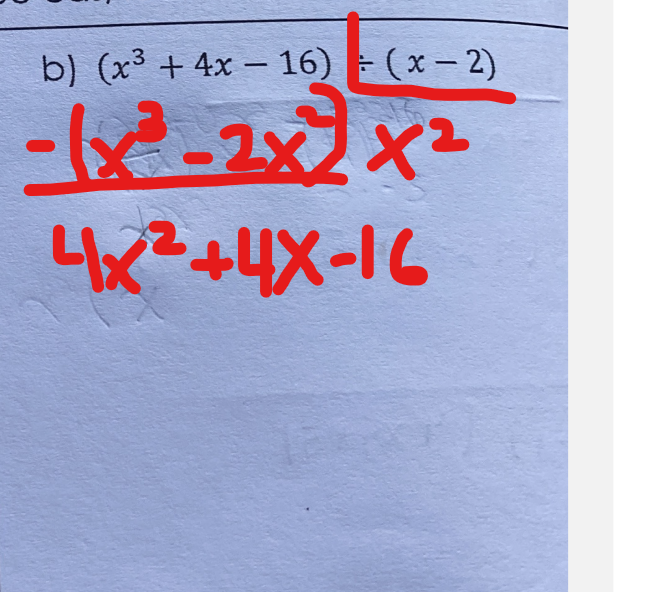 b) (x³ + 4x − 16) ÷ (x − 2)
-(x³ - 2x²) x²
4x² + 4x - 16